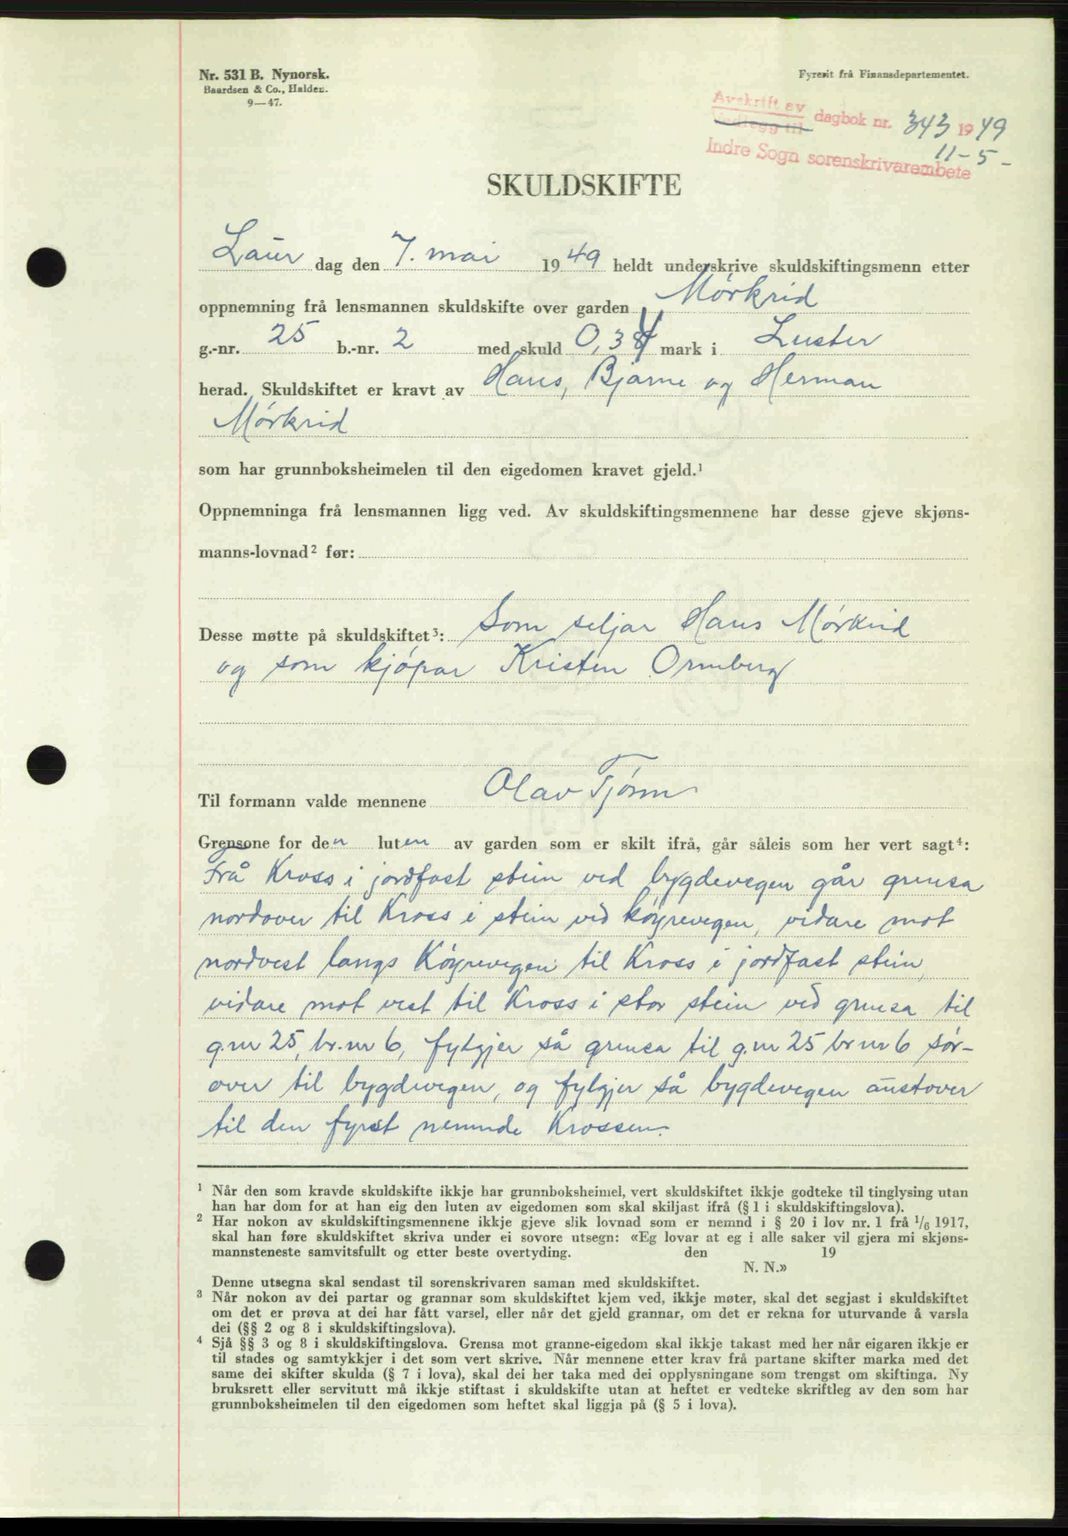 Nr. 531 B. Nynorsk.
Baardsen & Co., Halden.
9—47.
Fyresit frå Finansdepartementet.
Avskrift av
Vedlegg til
dagbok nr. 343 1949
11-5-
Indre Sogn sorenskrivarembete
SKULDSKIFTE
Laur dag den 7. mai 1949 heldt underskrive skuldskiftingsmenn etter
oppnemning frå lensmannen skuldskifte over garden Mörkrid
g.-nr. 25 b.-nr. 2 med skuld 0,38 mark i Luster
herad. Skuldskiftet er kravt av Hans, Bjarne og Herman
Mörkrid
som har grunnboksheimelen til den eigedomen kravet gjeld.¹
Oppnemninga frå lensmannen ligg ved. Av skuldskiftingsmennene har desse gjeve skjøns-
manns-lovnad² før:
Desse møtte på skuldskiftet³: Som seljar Hans Mörkrid
og som kjöpar Kristen Ormberg
Til formann valde mennene Olav Tjörnn
Grensone for den luten av garden som er skilt ifrå, går såleis som her vert sagt⁴:
Frå Kross i jordfast stein ved bygdevegen går grensa
nordover til Kross i stein vid köyrevegen, vidare mot
nordvest langs Köyrevegen til Kross i jordfast stein,
vidare mot vest til Kross i stor stein ved grensa til
g.nr 25, br.nr 6, fylgjer så grensa til g.nr 25 br nr 6 sör-
over til bygdevegen, og fylgjer så bygdevegen austover
til den fyrst nemnde Krossen.
¹ Når den som kravde skuldskifte ikkje har grunnboksheimel, vert skuldskiftet ikkje godteke til tinglysing utan
han har dom for at han eig den luten av eigedomen som skal skiljast ifrå (§ 1 i skuldskiftingslova).
² Har nokon av skuldskiftingsmennene ikkje gjeve slik lovnad som er nemnd i § 20 i lov nr. 1 frå ¹/₆ 1917,
skal han føre skuldskiftet skriva under ei sovore utsegn: «Eg lovar at eg i alle saker vil gjera mi skjøns-
mannsteneste samvitsfullt og etter beste overtyding. den 19
N. N.»
Denne utsegna skal sendast til sorenskrivaren saman med skuldskiftet.
³ Når nokon av dei partar og grannar som skuldskiftet kjem ved, ikkje møter, skal det segjast i skuldskiftet
om det er prøva at dei har fått varsel, eller når det gjeld grannar, om det er rekna for uturvande å varsla
dei (§§ 2 og 8 i skuldskiftingslova).
⁴ Sjå §§ 3 og 8 i skuldskiftingslova. Grensa mot granne-eigedom skal ikkje takast med her når eigaren ikkje er
til stades og samtykkjer i det som vert skrive. Når mennene etter krav frå partane skifter marka med det
same dei skifter skulda (§ 7 i lova), skal dei her taka med dei opplysningane som trengst om skiftinga. Ny
bruksrett eller servitutt må ikkje stiftast i skuldskifte utan at heftet er vedteke skriftleg av den som har
grunnboksheimelen til den eigedomen som heftet skal liggja på (§ 5 i lova).